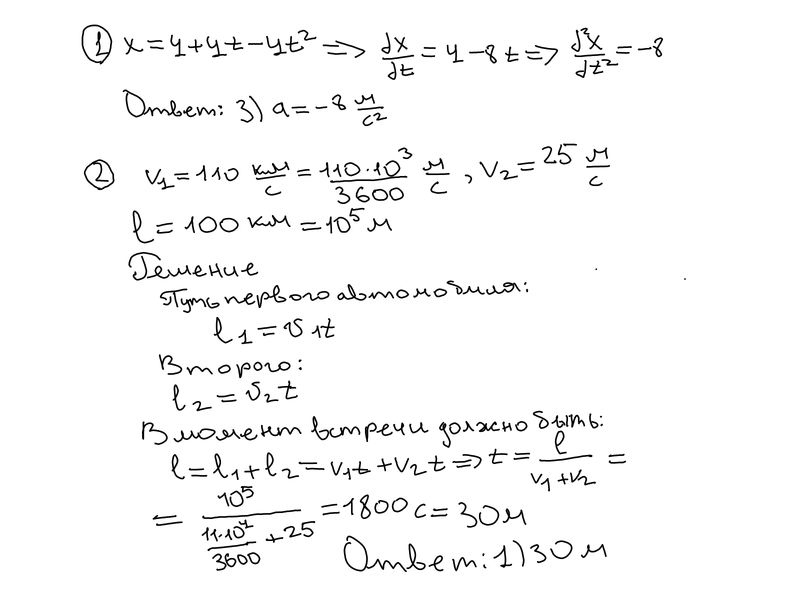 ① x=4+4t-4t² => dx/dt = 4-8t => d²x/dt² = -8
Ответ: 3) a=-8 м/с²
② v₁=110 км/с = 110·10³/3600 м/с, v₂=25 м/с
l=100 км=10⁵м
Решение
Путь первого автомобиля:
l₁=v₁t
Второго:
l₂=v₂t
В момент встречи должно быть:
l=l₁+l₂=v₁t+v₂t => t= l/(v₁+v₂) =
= 10⁵/(11·10⁴/3600 + 25) = 1800 с = 30м
Ответ: 1) 30 м